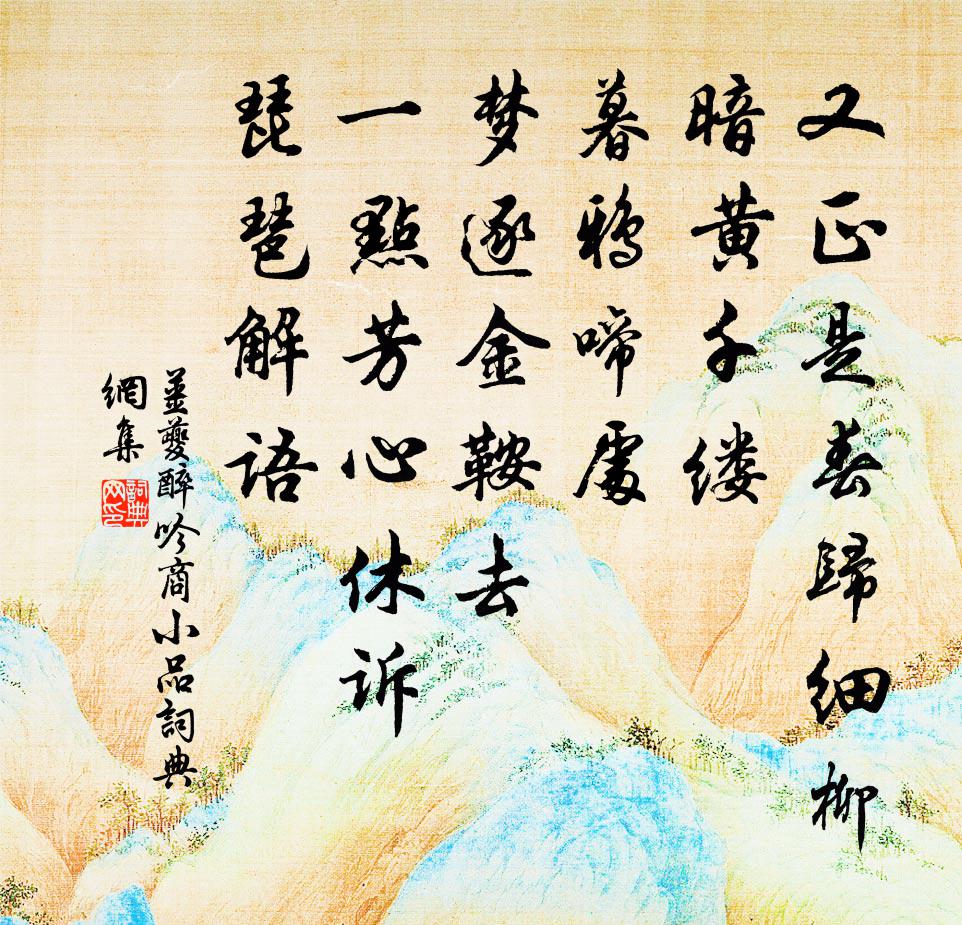 又正是春歸细柳
暗黄千缕
暮鸦啼處
梦逐金鞍去
一點芳心休诉
琵琶解语
姜夔醉吟商小品詞典
網集
詞典
网印